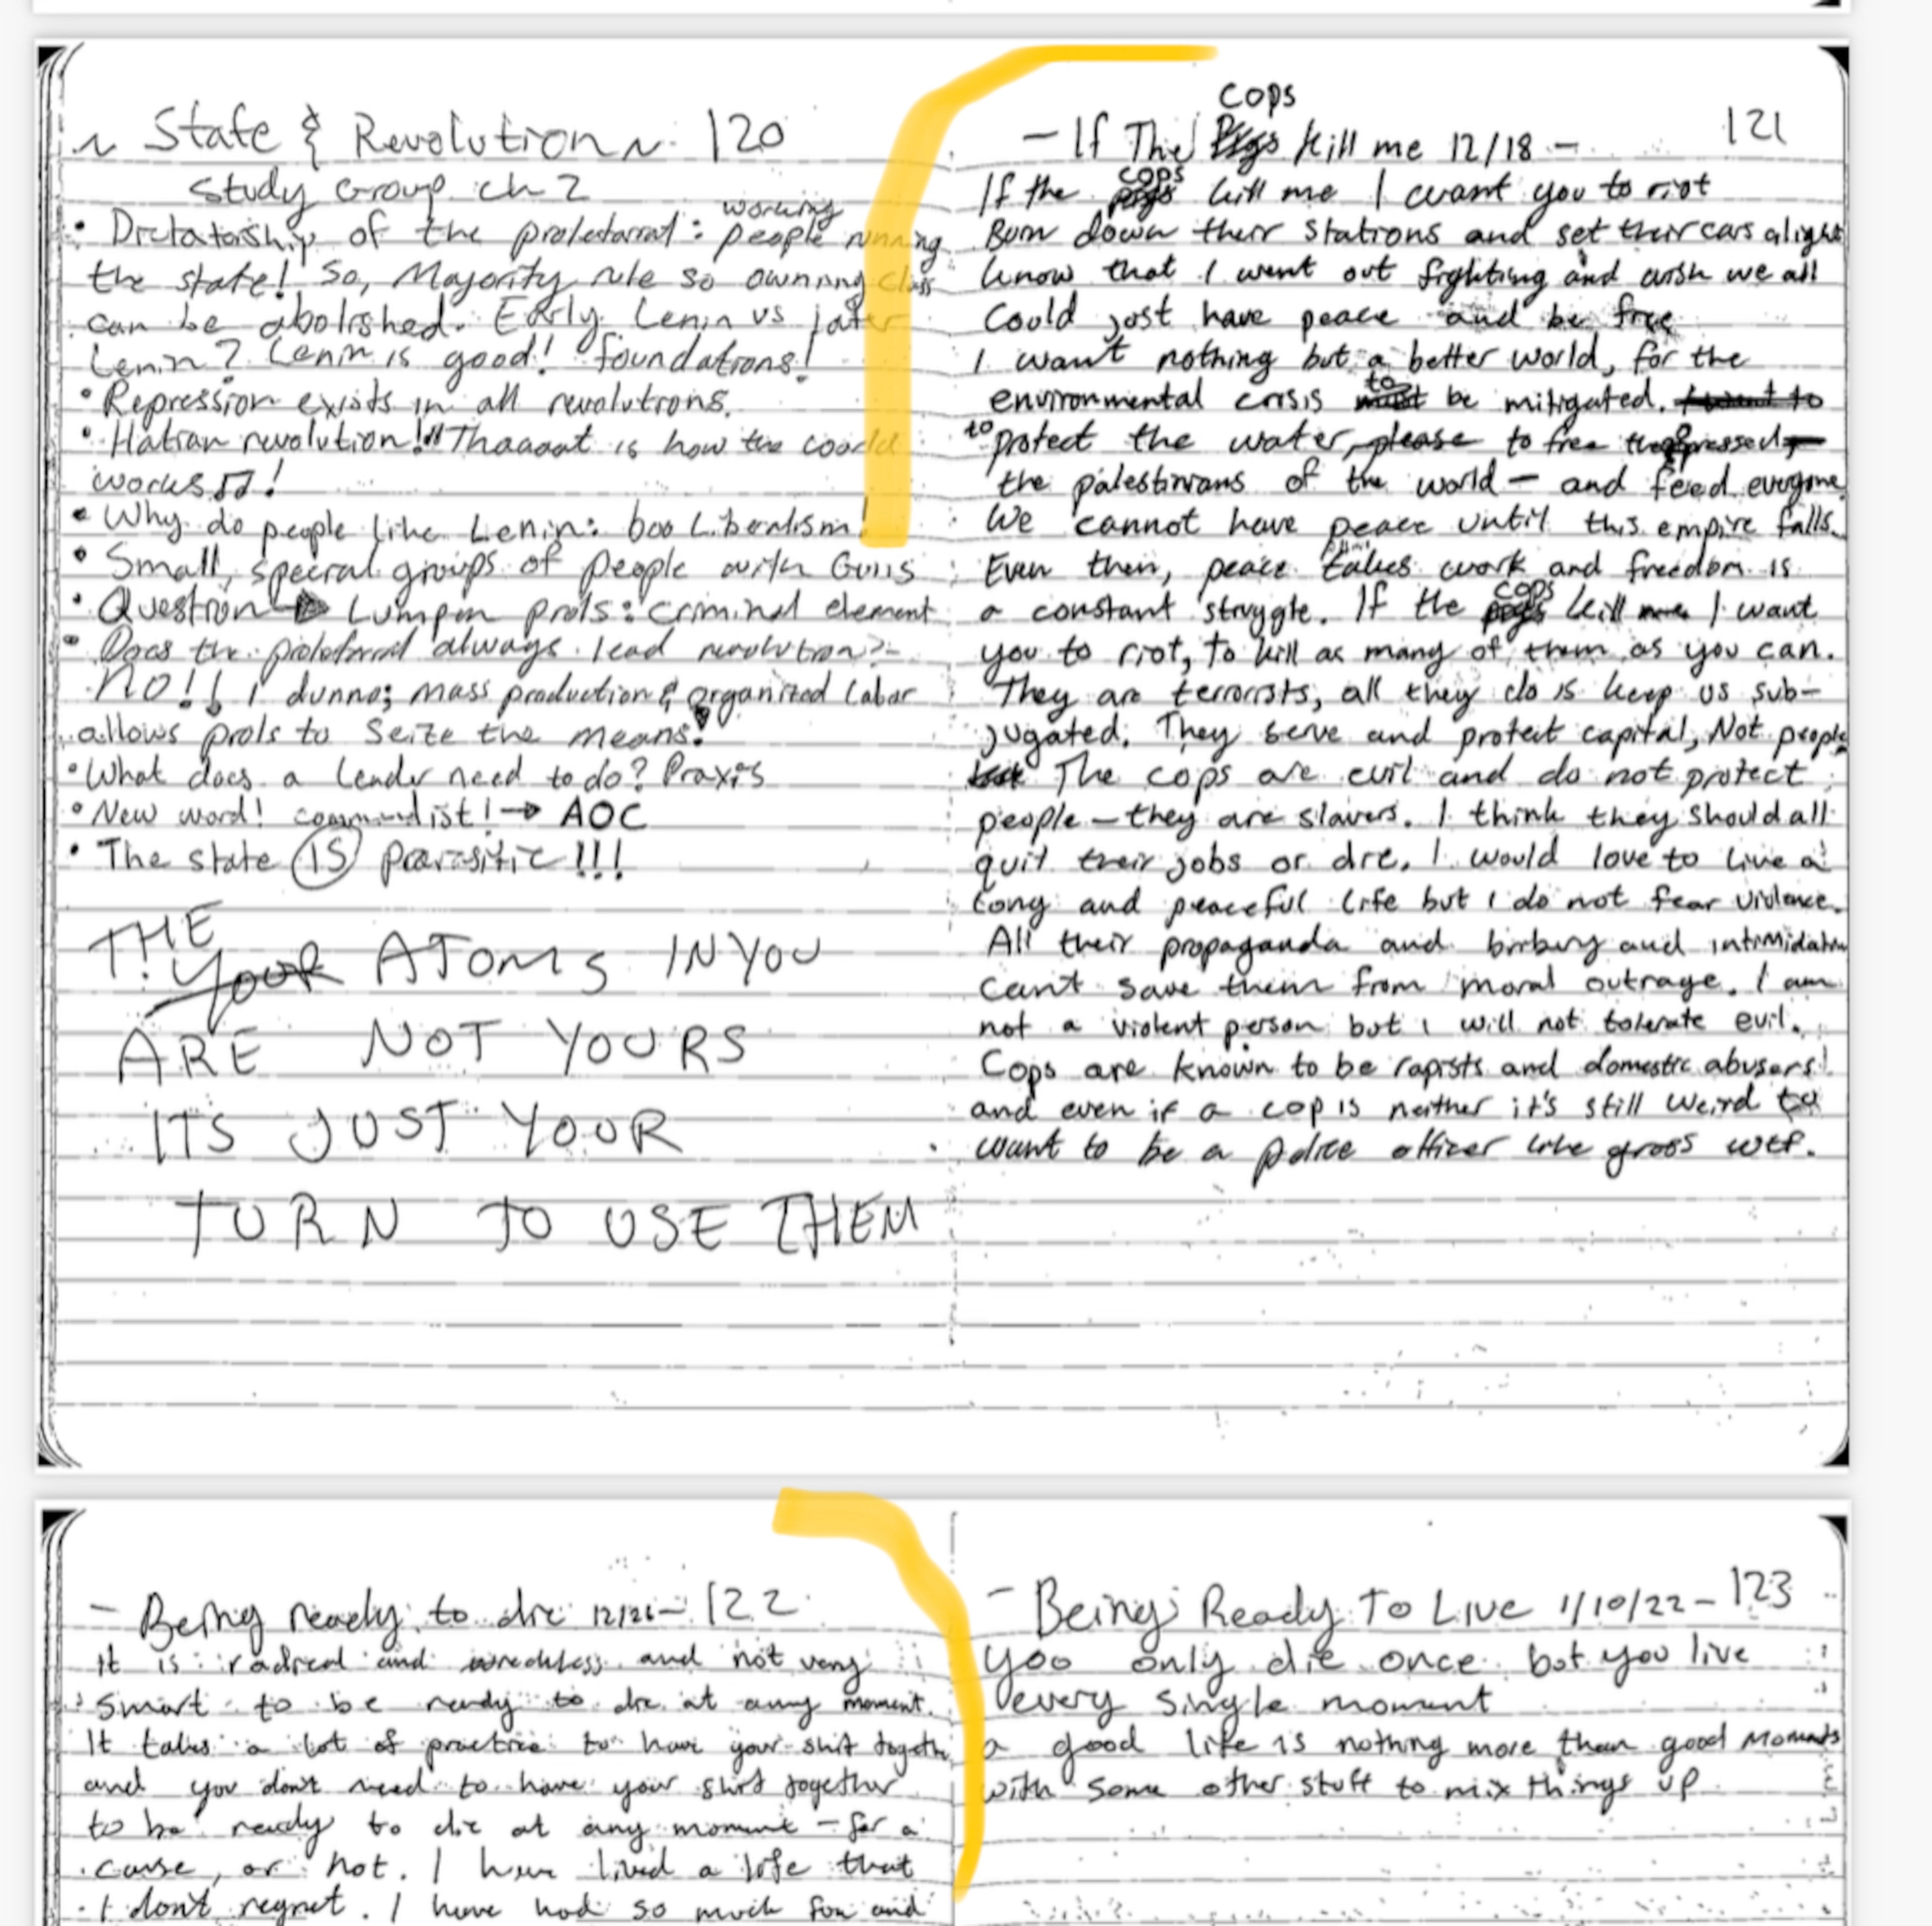 ~ State & Revolution ~ 120
Study Group ch 2
working
• Dictatorship of the proletariat: people running
the state! So, Majority rule so owning class
can be abolished. Early Lenin vs later
Lenin? Lenin is good! foundations!
• Repression exists in all revolutions.
• Hatian revolution! ♫ Thaaaat is how the world
works ♫!
• Why do people like Lenin: boo Liberalism!
• Small, special groups of people with Guns
• Question → Lumpen prols: criminal element
• Does the proletariat always lead revolution?-
NO!! I dunno; mass production & organized labor
allows prols to Seize the means!
• What does a leader need to do? Praxis
• New word! commundist! → AOC
• The state IS parasitic!!!
THE
Your ATOMS IN YOU
ARE NOT YOURS
ITS JUST YOUR
TURN TO USE THEM
cops
- If The Pigs kill me 12/18 - 121
cops
If the pigs kill me I want you to riot
Burn down their stations and set their cars alight
know that I went out fighting and wish we all
Could just have peace and be free
I want nothing but a better world, for the
to
environmental crisis must be mitigated. I want to
to protect the water, please to free the oppressed -
the palestinians of the world - and feed everyone.
We cannot have peace until this empire falls.
Even then, peace takes work and freedom is
cops
a constant struggle. If the pigs kill me I want
you to riot, to kill as many of them as you can.
They are terrorists, all they do is keep us sub-
jugated. They serve and protect capital, Not people
The cops are evil and do not protect
people - they are slavers. I think they should all
quit their jobs or die. I would love to live a
long and peaceful life but I do not fear violence.
All their propaganda and bribery and intimidation
can't save them from moral outrage. I am
not a violent person but I will not tolerate evil.
Cops are known to be rapists and domestic abusers!
and even if a cop is neither it's still weird to
want to be a police officer like gross wtf.
- Being ready to die 12/26 - 122
It is radical and wreckless and not very
smart to be ready to die at any moment.
It takes a lot of practice to have your shit together
and you don't need to have your shit together
to be ready to die at any moment - for a
cause, or not. I have lived a life that
I don't regret. I have had so much fun and
- Being Ready To Live 1/10/22 - 123
you only die once but you live
every single moment
a good life is nothing more than good moments
with some other stuff to mix things up